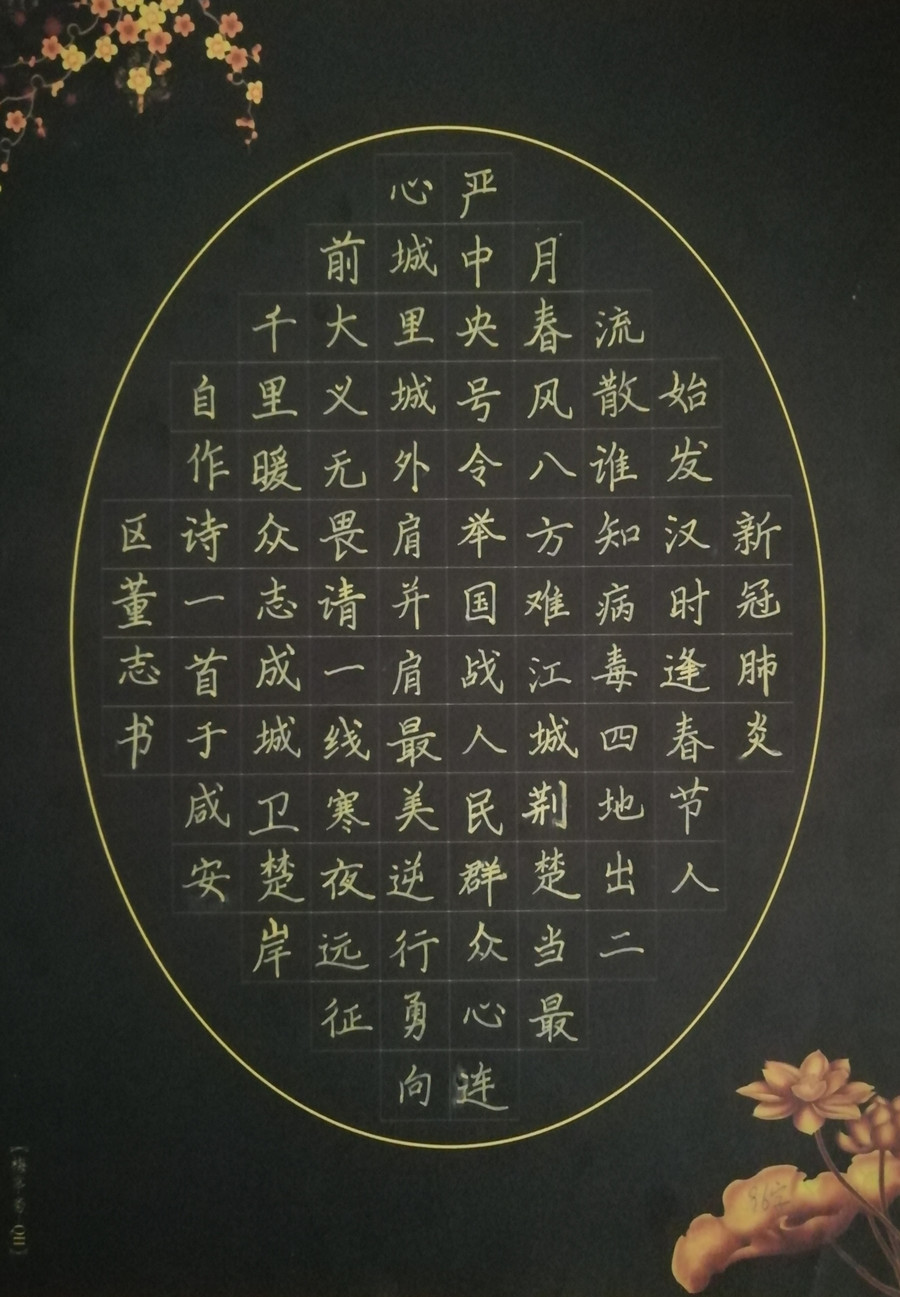 新冠肺炎
始发汉时逢春节人
流散谁知病毒四地出二
月春风八方难江城荆楚当最
严中央号令举国战人民群众心连
心城里城外肩并肩最美逆行勇向
前大义无畏请一线寒夜远征
千里暖众志成城卫楚岸
自作诗一首于咸安
区董志书
96字